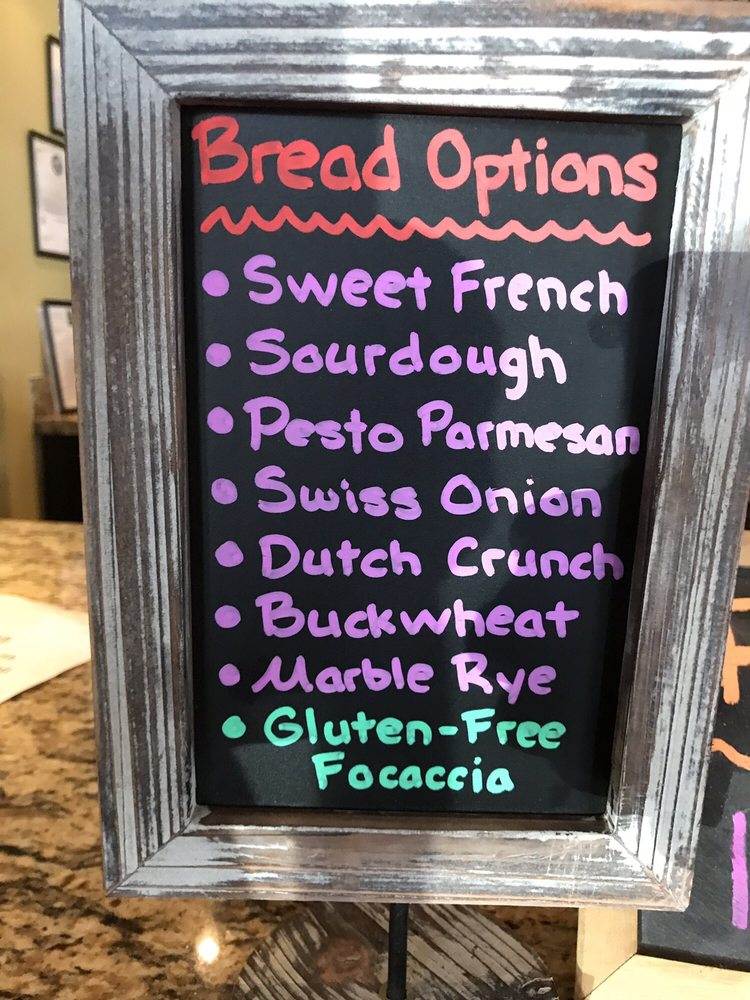 Bread Options
• Sweet French
• Sourdough
• Pesto Parmesan
• Swiss Onion
• Dutch Crunch
• Buckwheat
• Marble Rye
• Gluten-Free
Focaccia